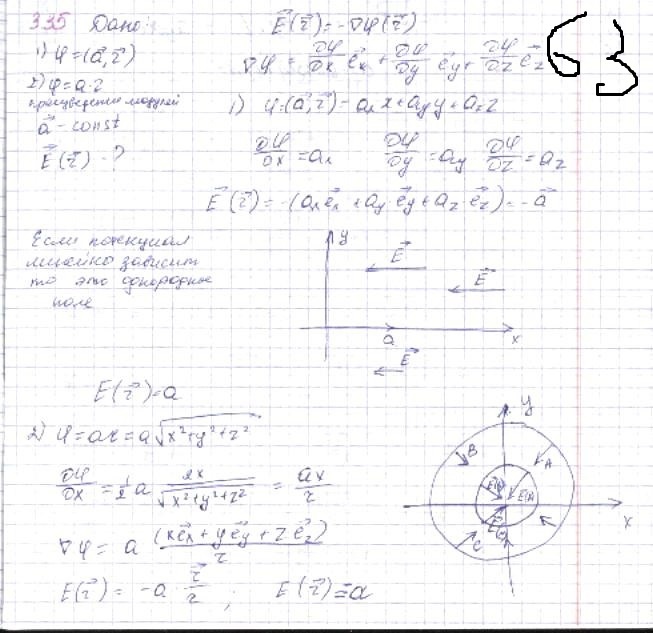 335 Дано:
1) φ=(a⃗,r⃗)
2) φ=a·r
произведение модулей
a⃗ - const
E⃗(r⃗) - ?
E⃗(r⃗) = -∇φ(r⃗)
∇φ = ∂φ/∂x e⃗x + ∂φ/∂y e⃗y + ∂φ/∂z e⃗z
63
1) φ=(a⃗,r⃗) = axx+ayy+azz
∂φ/∂x = ax ∂φ/∂y = ay ∂φ/∂z = az
E⃗(r⃗) = -(axe⃗x + ay·e⃗y + az·e⃗z) = -a⃗
Если потенциал
линейно зависит
то это однородное
поле
y
E⃗
E⃗
a x
E⃗
E(r⃗)=a
2) φ=ar=a√x²+y²+z²
∂φ/∂x = 1/2 a 2x/√x²+y²+z² = ax/r
∇φ = a (xe⃗x + ye⃗y + ze⃗z)/r
E⃗(r⃗) = -a · r⃗/r ; E(r⃗) = a
y
B
A
E(A)
x
C